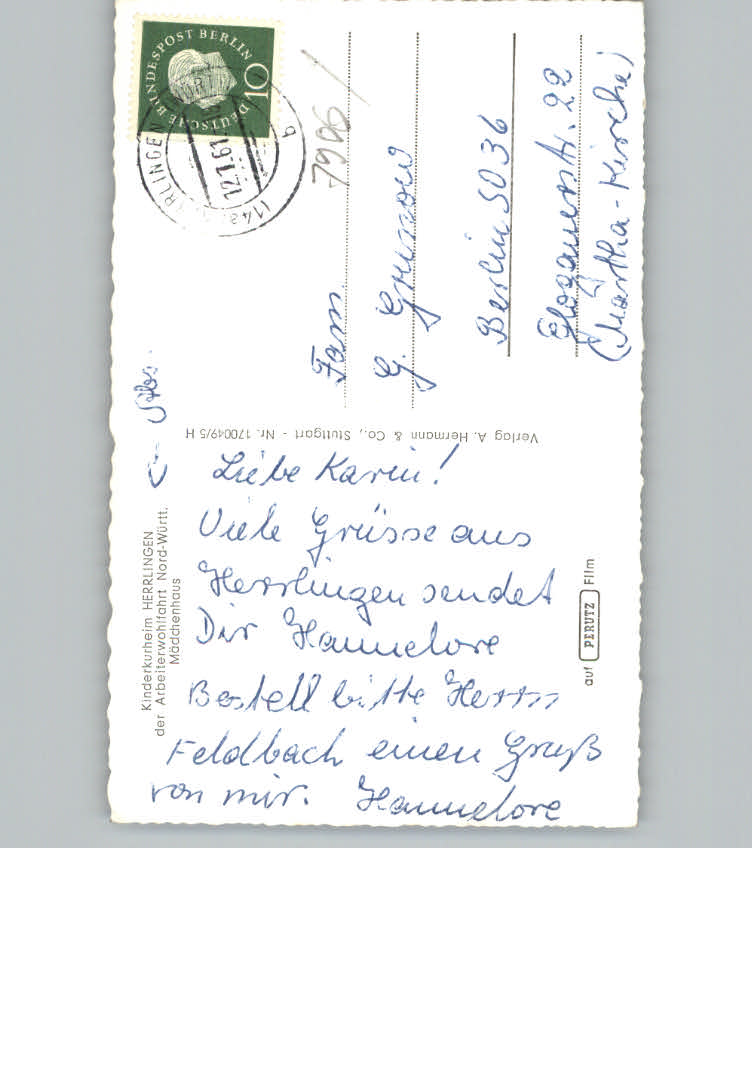 Kinderkurheim HERRLINGEN
der Arbeiterwohlfahrt Nord-Württ.
Mädchenhaus
Liebe Karin!
Viele Grüsse aus
Herrlingen sendet
Dir Hannelore
Bestell bitte Herrn
Feldbach einen Gruß
von mir. Hannelore
Verlag A. Hermann & Co., Stuttgart - Nr. 170049/5 H
auf PERUTZ Film
DEUTSCHE BUNDESPOST BERLIN
10
12.1.61
b
7906
Fam.
G. Grunow
Berlin SO 36
Glogauerstr. 22
(Martha-Kirche)